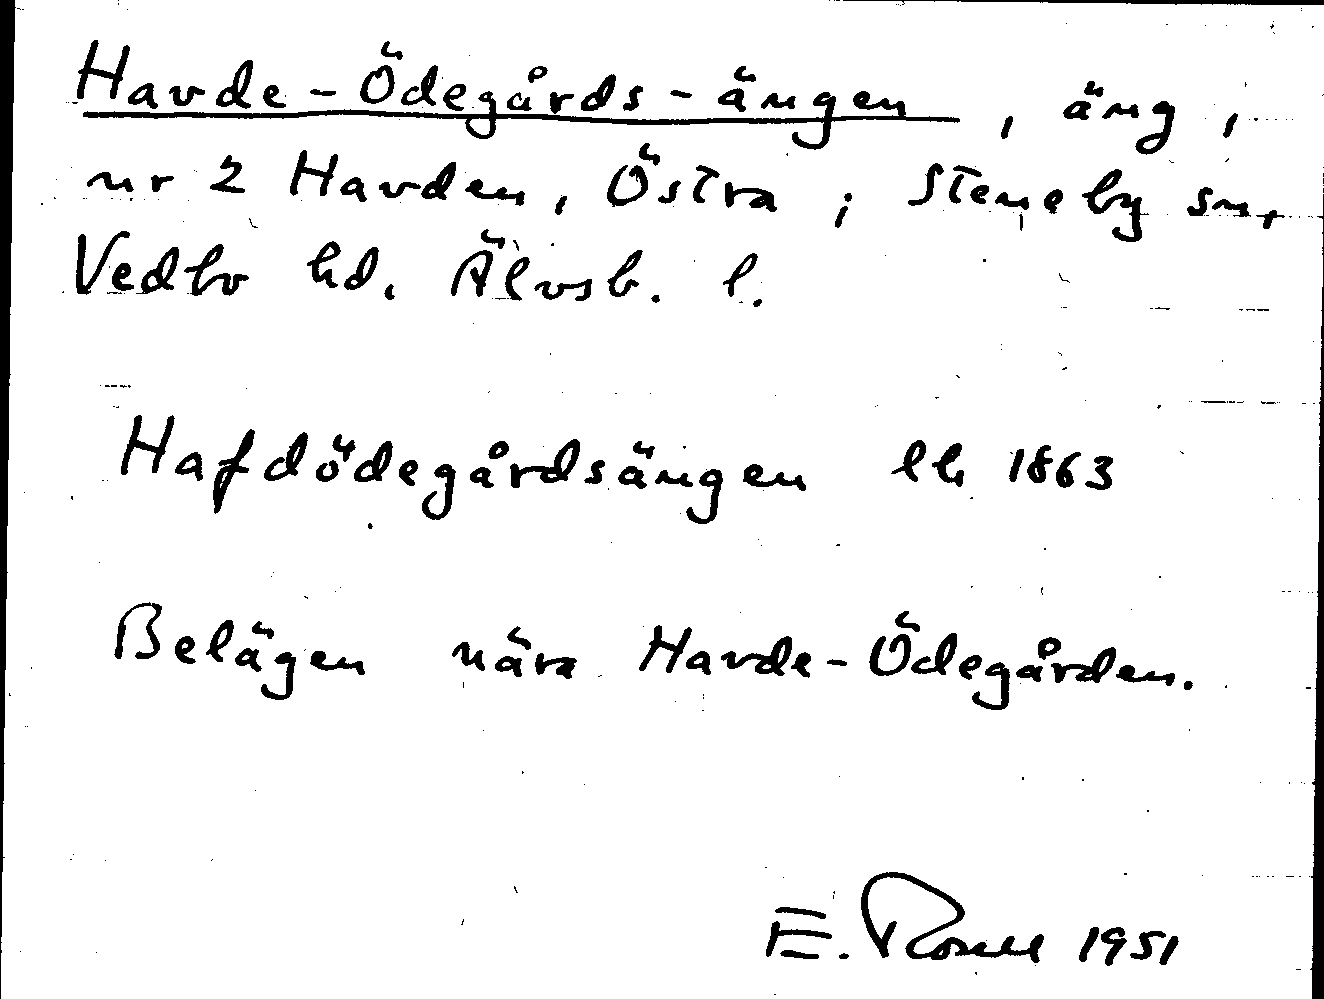 Havde-Ödegårds-ängen, äng,
nr 2 Havden, Östra; Steneby sn,
Vedbo hd. Älvsb. l.
Hafdödegårdsängen lh 1863
Belägen nära Havde-Ödegården.
E. 1951